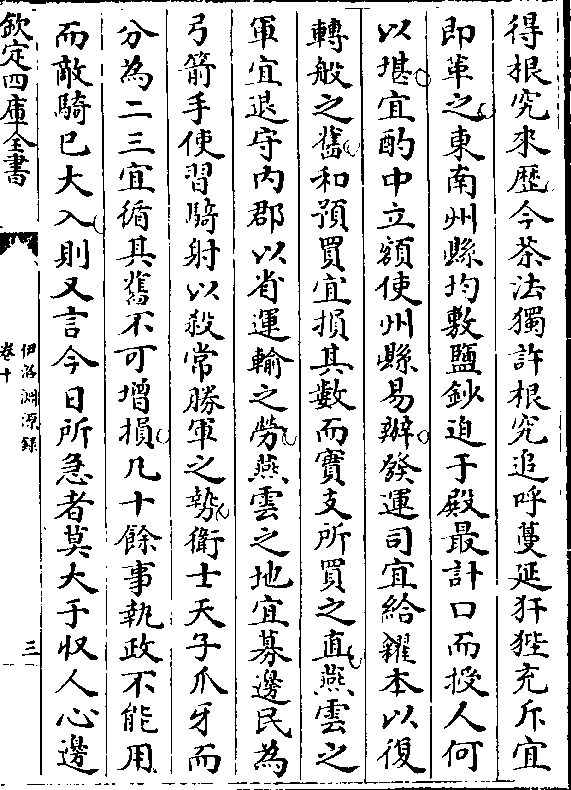 得根究來歴今茶法獨許根究追呼蔓延犴狴充斥宜
即革之東南州縣均敷鹽鈔迫于殿最計口而授人何
以堪宜酌中立額使州縣易辦發運司宜給糴本以復
轉般之舊和預買宜損其數而實支所買之直燕雲之
軍宜退守内郡以省運輸之勞燕雲之地宜募邊民為
弓箭手使習騎射以殺常勝軍之勢衛士天子爪牙而
分為二三宜循其舊不可增損凡十餘事執政不能用
而敵騎已大入則又言今日所急者莫大于收人心邊
欽定四庫全書
伊洛淵源録
卷十
三